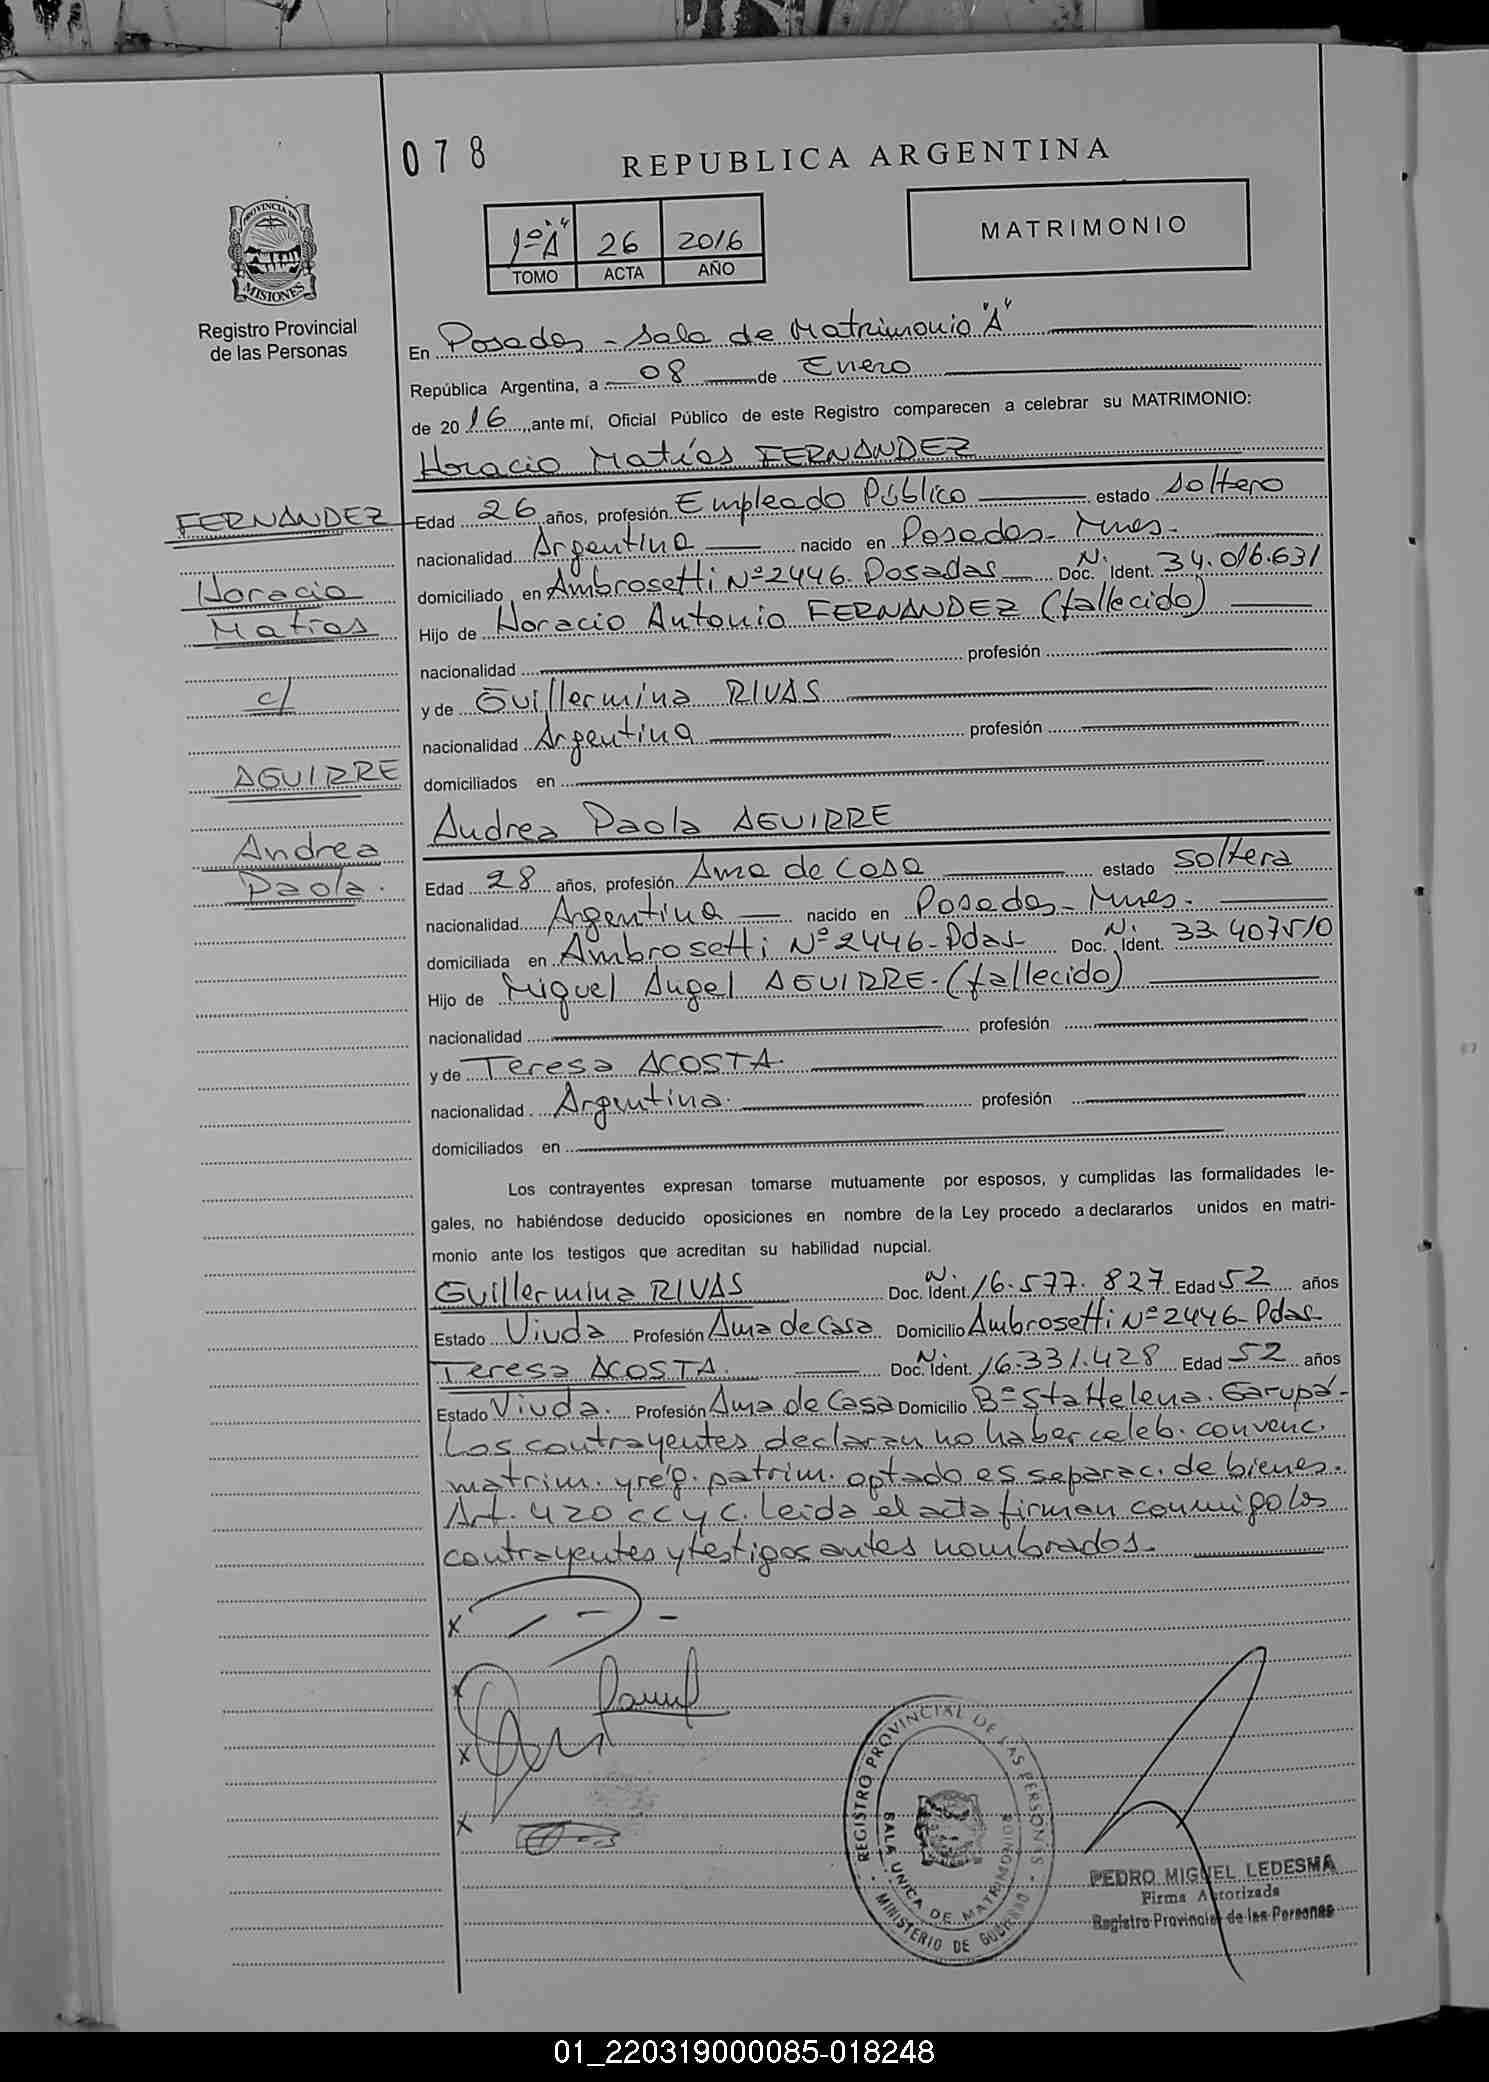 078
REPUBLICA ARGENTINA
1º "A" 26 2016
TOMO ACTA AÑO
MATRIMONIO
PROVINCIA DE
MISIONES
Registro Provincial
de las Personas
En Posadas - Sala de Matrimonio "A"
República Argentina, a 08 de Enero
de 2016, ante mí, Oficial Público de este Registro comparecen a celebrar su MATRIMONIO:
Horacio Matías FERNANDEZ
FERNANDEZ
Horacio
Matías
c/
AGUIRRE
Andrea
Paola.
Edad 26 años, profesión Empleado Público estado Soltero
nacionalidad Argentina nacido en Posadas - Mnes.
domiciliado en Ambrosetti Nº 2446. Posadas Doc. N. Ident. 34.016.631
Hijo de Horacio Antonio FERNANDEZ (fallecido)
nacionalidad profesión
y de Guillermina RIVAS
nacionalidad Argentina profesión
domiciliados en
Andrea Paola AGUIRRE
Edad 28 años, profesión Ama de Casa estado Soltera
nacionalidad Argentina nacido en Posadas - Mnes.
domiciliada en Ambrosetti Nº 2446 - Pdas - Doc. N. Ident. 33.407510
Hijo de Miguel Angel AGUIRRE - (fallecido)
nacionalidad profesión
y de Teresa ACOSTA.
nacionalidad Argentina. profesión
domiciliados en
Los contrayentes expresan tomarse mutuamente por esposos, y cumplidas las formalidades le-
gales, no habiéndose deducido oposiciones en nombre de la Ley procedo a declararlos unidos en matri-
monio ante los testigos que acreditan su habilidad nupcial.
Guillermina RIVAS Doc. N. Ident. 16.577.827 Edad 52 años
Estado Viuda Profesión Ama de Casa Domicilio Ambrosetti Nº 2446 - Pdas -
Teresa ACOSTA. Doc. N. Ident. 16.331.428 Edad 52 años
Estado Viuda. Profesión Ama de Casa Domicilio Bº Sta Helena. Garupá -
Los contrayentes declaran no haber celeb. convenc.
matrim. y rég. patrim. optado es separac. de bienes.
Art. 420 CC y C. Leída el acta firman conmigo los
contrayentes y testigos antes nombrados.
x
x
x
x
REGISTRO PROVINCIAL DE LAS PERSONAS
SALA UNICA DE MATRIMONIO
MINISTERIO DE GOBIERNO
PEDRO MIGUEL LEDESMA
Firma Autorizada
Registro Provincial de las Personas
01_220319000085-018248